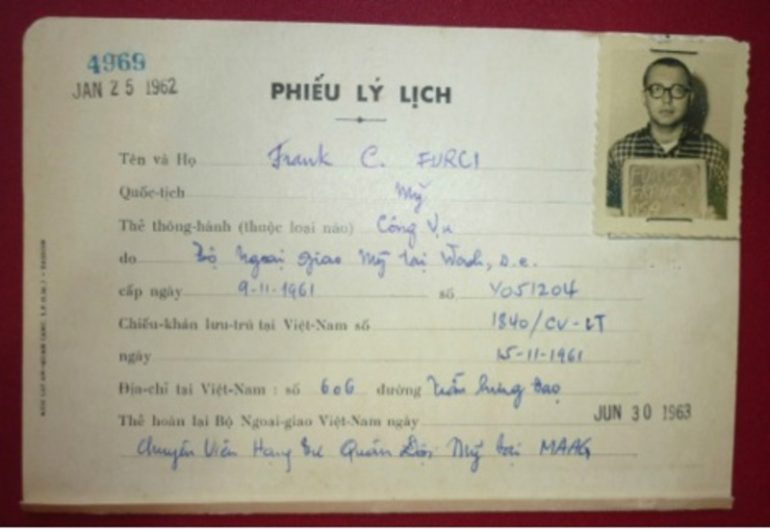 4969
JAN 25 1962
PHIẾU LÝ LỊCH
Tên và Họ Frank C. FURCI
Quốc-tịch Mỹ
Thẻ thông-hành (thuộc loại nào) Công Vụ
do Bộ Ngoại giao Mỹ tại Wash, D.C.
cấp ngày 9-11-1961 số Y051204
Chiếu-khán lưu-trú tại Việt-Nam số 1840/CV-LT
ngày 15-11-1961
Địa-chỉ tại Việt-Nam : số 606 đường Trần Hưng Đạo
Thẻ hoàn lại Bộ Ngoại-giao Việt-Nam ngày JUN 30 1963
Chuyên Viên Hạng Quân Đội Mỹ tại MAAG